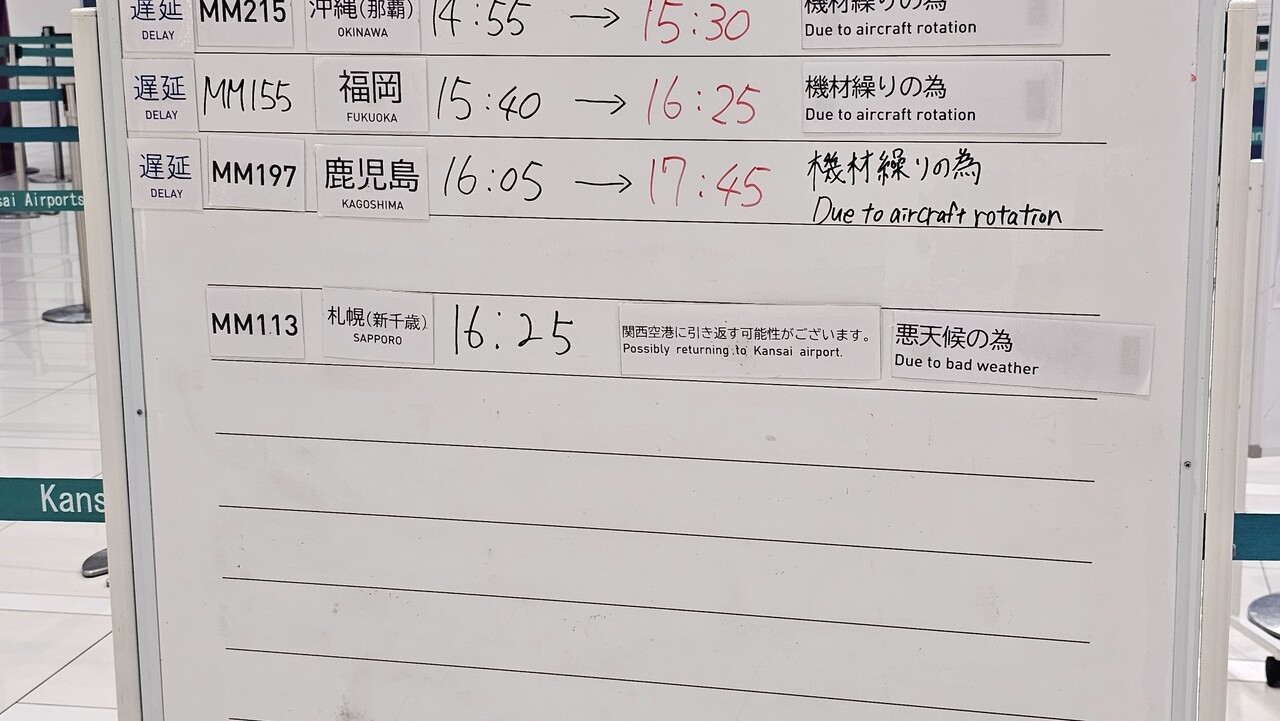 遅延 MM215 沖縄(那覇) 14:55 → 15:30 機材繰りの為
DELAY OKINAWA Due to aircraft rotation
遅延 MM155 福岡 15:40 → 16:25 機材繰りの為
DELAY FUKUOKA Due to aircraft rotation
遅延 MM197 鹿児島 16:05 → 17:45 機材繰りの為
DELAY KAGOSHIMA Due to aircraft rotation
MM113 札幌(新千歳) 16:25 関西空港に引き返す可能性がございます。 悪天候の為
SAPPORO Possibly returning to Kansai airport. Due to bad weather
sai Airports
Kans